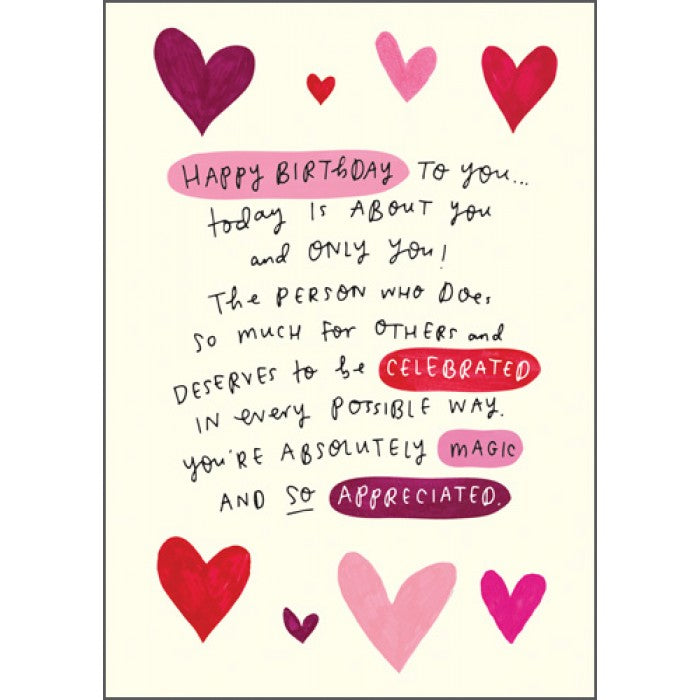 HAPPY BIRThDAY TO you...
today IS ABOUT you
and ONLY you!
The PERSON WHO DOes
SO MUCH for OTHERS and
DESERVES to be CELEBRATED
IN every POSSIBLE WAY.
you'RE ABSOLUTELY MAGIC
AND SO APPRECIATED.